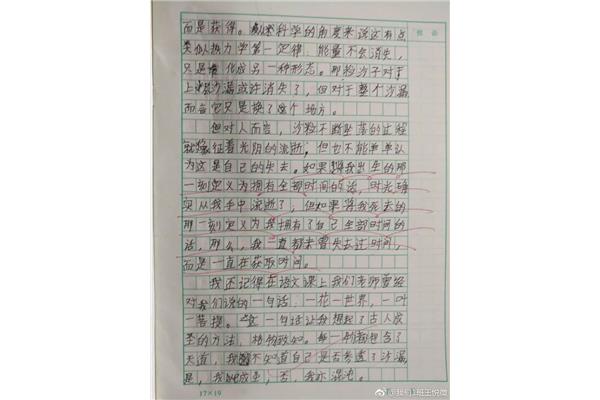 而是获得。从科学的角度来说这有点
类似热力学第一定律,能量不会消失,
只是转化成另一种形态。那粒沙子对于
上半沙漏或许消失了,但对于整个沙漏
而言它只是换了个地方。
但对人而言,沙粒不断坠落的过程
就象征着光阴的流逝;但也不能单单认
为这是自己的失去。如果将我出生的那
一刻定义为拥有全部时间的话,时光确
实从我手中流逝了,但如果将我死去的
那一刻定义为我拥有了自己全部时间的
话,那么,我一直都未曾失去过时间,
而是一直在获取时间。
我还记得在语文课上我们老师曾经
对我们说的一句话:一花一世界,一叶
一菩提。这一句话让我想起了古人成
圣的方法,格物致知。每一物都包含了
天道,我不知道自己是否参透了沙漏
是,我似成圣,否,我亦混沌。
17×19
@我们班王悦微